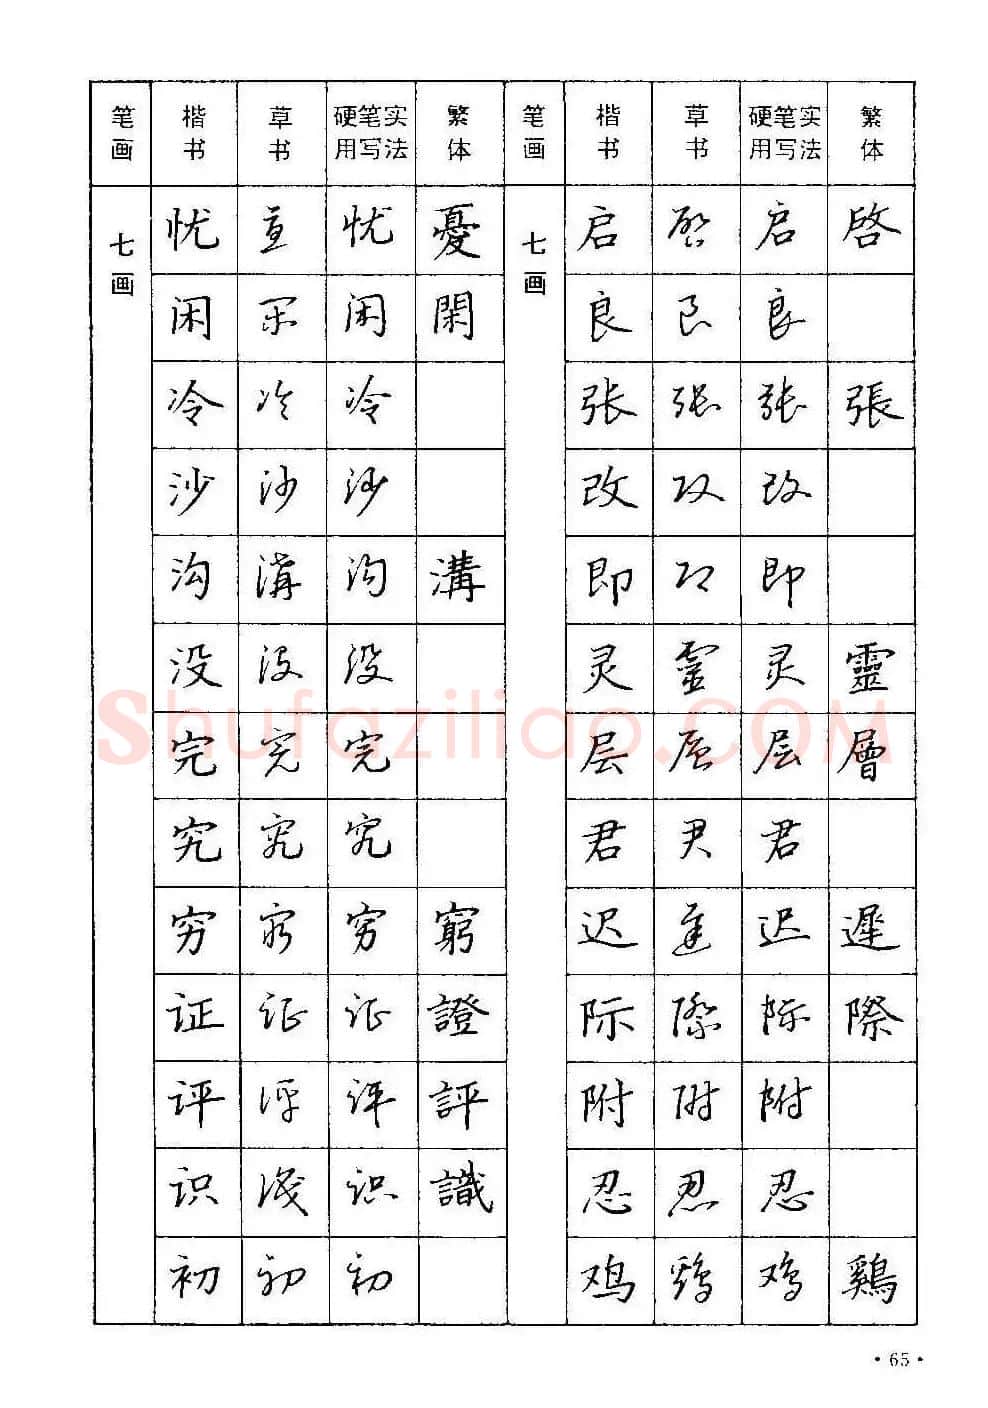 笔画 楷书 草书 硬笔实用写法 繁体 笔画 楷书 草书 硬笔实用写法 繁体
七画 忧 忧 忧 憂 七画 启 启 启 啓
闲 闲 闲 閑 良 良 良
冷 冷 冷 张 张 张 張
沙 沙 沙 改 改 改
沟 溝 沟 溝 即 即 即
没 没 没 灵 靈 灵 靈
完 完 完 层 层 层 層
究 究 究 君 君 君
穷 穷 穷 窮 迟 迟 迟 遲
证 证 证 證 际 際 际 際
评 评 评 評 附 附 附
识 识 识 識 忍 忍 忍
初 初 初 鸡 鸡 鸡 鷄
Shufaziliao.COM
·65·